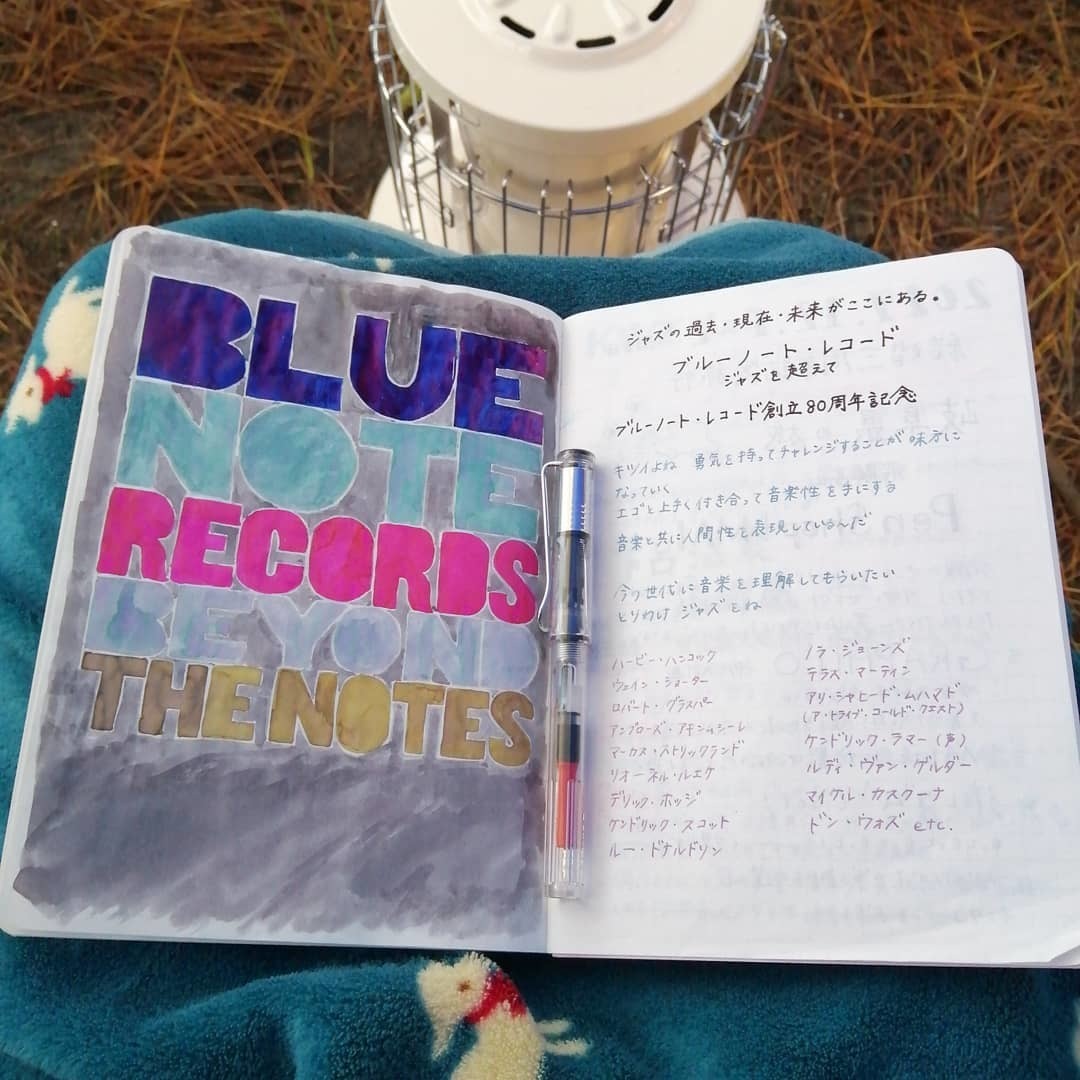 BLUE
NOTE
RECORDS
BEYOND
THE NOTES
ジャズの過去・現在・未来がここにある。
ブルーノート・レコード
ジャズを超えて
ブルーノート・レコード創立80周年記念
キツイよね 勇気を持ってチャレンジすることが味方に
なっていく
エゴと上手く付き合って音楽性を手にする
音楽と共に人間性を表現しているんだ
今の世代に音楽を理解してもらいたい
とりわけ ジャズをね
ハービー・ハンコック
ウェイン・ショーター
ロバート・グラスパー
アンブローズ・アキンムシーレ
マーカス・ストリックランド
リオーネル・ルエケ
デリック・ホッジ
ケンドリック・スコット
ルー・ドナルドソン
ノラ・ジョーンズ
テラス・マーティン
アリ・シャヒード・ムハマド
(ア・トライブ・コールド・クエスト)
ケンドリック・ラマー(声)
ルディ・ヴァン・ゲルダー
マイケル・カスクーナ
ドン・ウォズ etc.